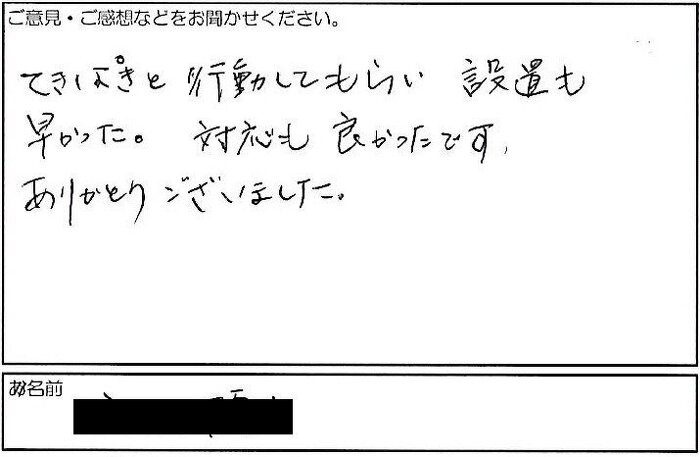 ご意見・ご感想などをお聞かせください。
てきぱきと 行動してもらい 設置も
早かった。 対応も 良かったです.
ありがとうございました。
お名前